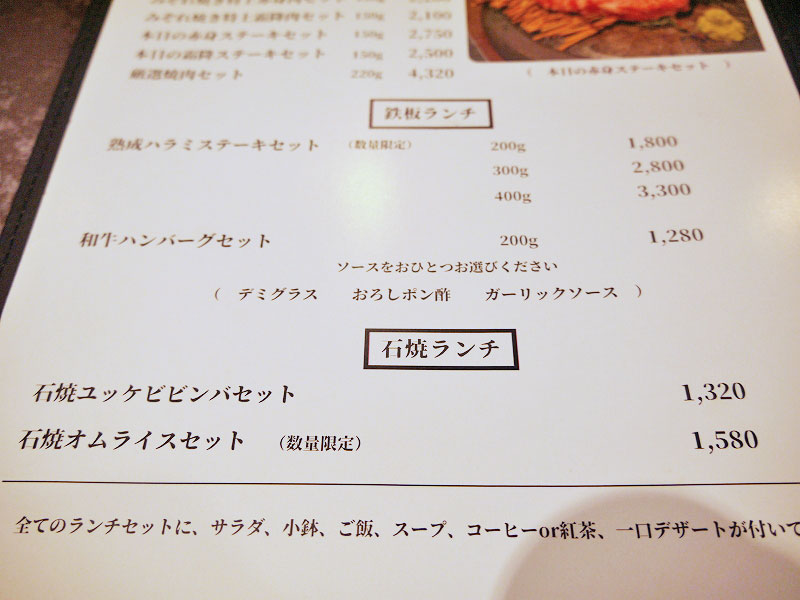 みぞれ焼き特上霜降肉セット 150g 2,100
本日の赤身ステーキセット 150g 2,750
本日の霜降ステーキセット 150g 2,500
厳選焼肉セット 220g 4,320
( 本日の赤身ステーキセット )
鉄板ランチ
熟成ハラミステーキセット (数量限定) 200g 1,800
300g 2,800
400g 3,300
和牛ハンバーグセット 200g 1,280
ソースをおひとつお選びください
( デミグラス おろしポン酢 ガーリックソース )
石焼ランチ
石焼ユッケビビンバセット 1,320
石焼オムライスセット (数量限定) 1,580
全てのランチセットに、サラダ、小鉢、ご飯、スープ、コーヒーor紅茶、一口デザートが付いて